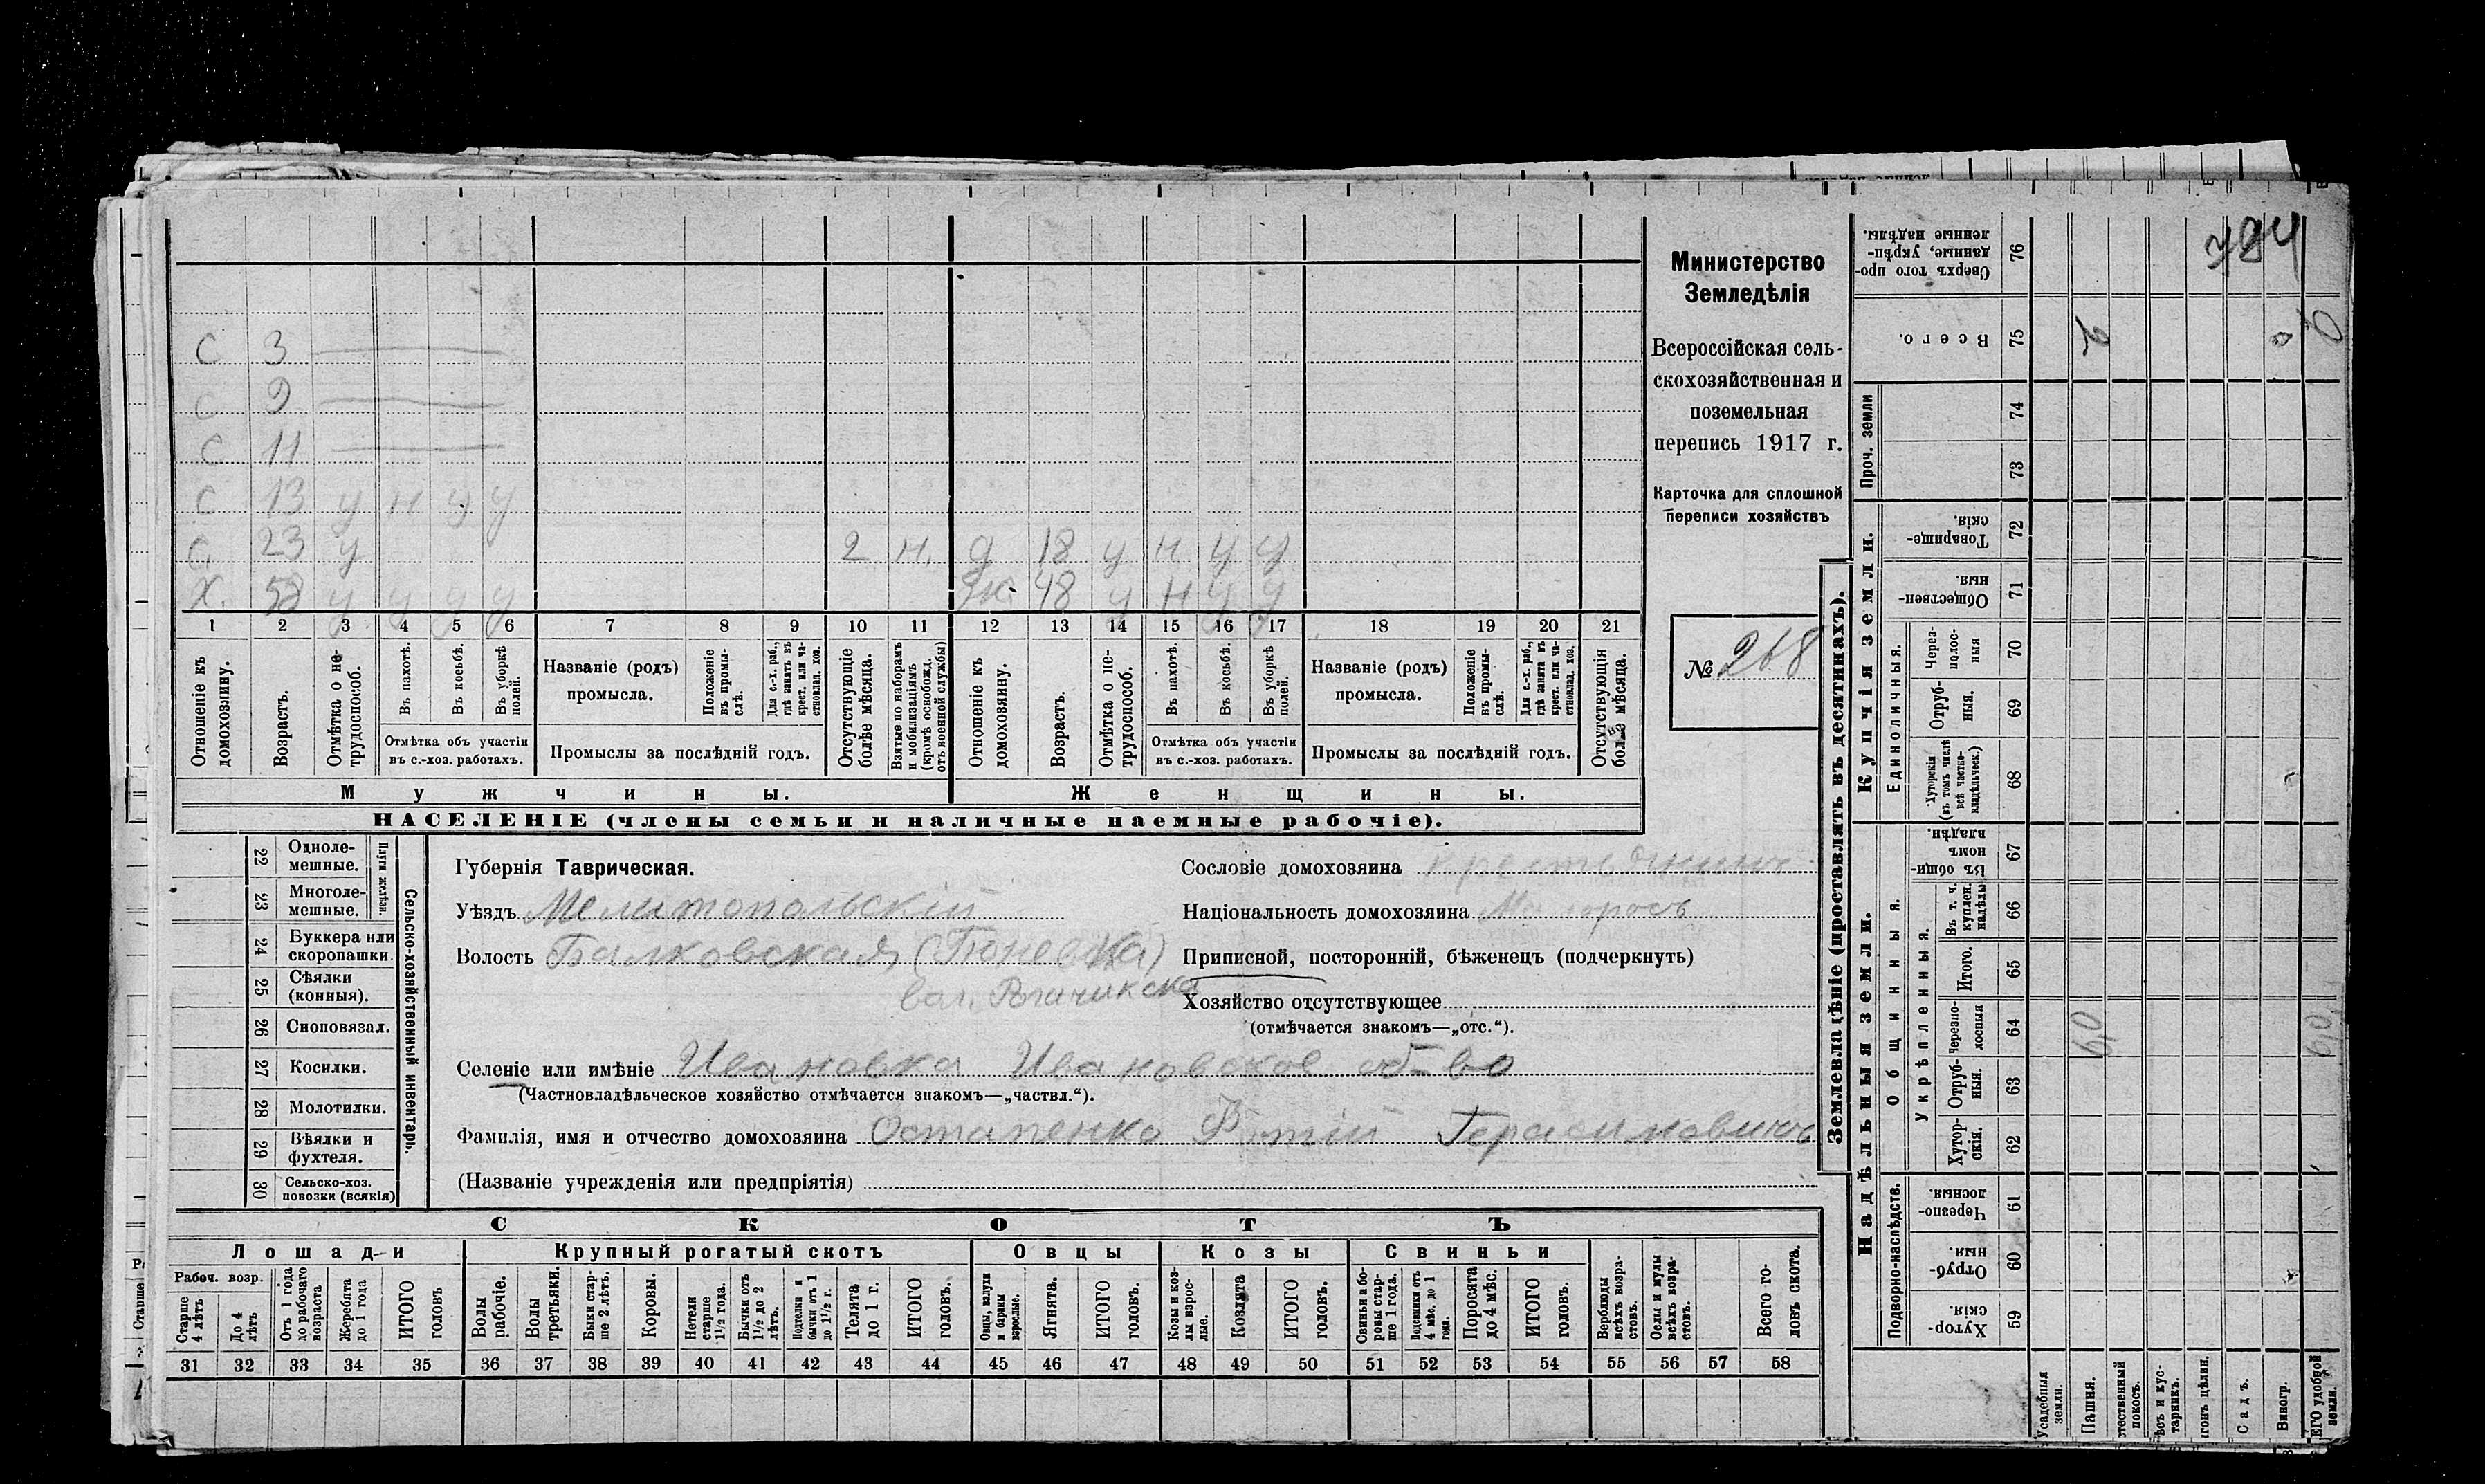 784
С 3
С 9
С 11
С 13 у н у у
С 23 у 2 н. д 18 у н у у
Х. 58 у у у у Ж. 48 у н у у
1 2 3 4 5 6 7 8 9 10 11 12 13 14 15 16 17 18 19 20 21
Отношеніе къ домохозяину.
Возрастъ.
Отмѣтка о нетрудоспособ.
Въ пахотѣ.
Въ косьбѣ.
Въ уборкѣ полей.
Отмѣтка объ участіи
въ с.-хоз. работахъ.
Названіе (родъ)
промысла.
Положеніе въ промыслѣ.
Для с.-х. раб., гдѣ занятъ въ крест. или частновлад. хоз.
Промыслы за послѣдній годъ.
Отсутствующіе болѣе мѣсяца.
Взятые по наборамъ и мобилизаціямъ (кромѣ освобожд. отъ военной службы)
Отношеніе къ домохозяину.
Возрастъ.
Отмѣтка о нетрудоспособ.
Въ пахотѣ.
Въ косьбѣ.
Въ уборкѣ полей.
Отмѣтка объ участіи
въ с.-хоз. работахъ.
Названіе (родъ)
промысла.
Положеніе въ промыслѣ.
Для с.-х. раб., гдѣ занята въ крест. или частновлад. хоз.
Промыслы за послѣдній годъ.
Отсутствующія болѣе мѣсяца.
Мужчины. Женщины.
НАСЕЛЕНІЕ (члены семьи и наличные наемные рабочіе).
Министерство
Земледѣлія
Всероссійская сель-
скохозяйственная и
поземельная
перепись 1917 г.
Карточка для сплошной
переписи хозяйствъ
№ 268
22 Одноле-
мешные.
23 Многоле-
мешные.
Плуги желѣзн.
24 Буккера или
скоропашки.
25 Сѣялки
(конныя).
26 Сноповязал.
27 Косилки.
28 Молотилки.
29 Вѣялки и
фухтеля.
30 Сельско-хоз.
повозки (всякія)
Сельско-хозяйственный инвентарь.
Губернія Таврическая.
Уѣздъ Мелитопольскій
Волость Балковская
вол.
Селеніе или имѣніе Ивановка Ивановское об-во
(Частновладѣльческое хозяйство отмѣчается знакомъ—„частвл.“).
Фамилія, имя и отчество домохозяина Остапенко Герасимовичъ
(Названіе учрежденія или предпріятія)
Сословіе домохозяина крестьянинъ
Національность домохозяина Малоросъ
Приписной, посторонній, бѣженецъ (подчеркнуть)
Хозяйство отсутствующее
(отмѣчается знакомъ—„отс.“).
СКОТЪ
Лошади Крупный рогатый скотъ Овцы Козы Свиньи
Рабоч. возр.
Старше 4 лѣтъ
До 4 лѣтъ
Отъ 1 года до рабочаго возраста
Жеребята до 1 года
ИТОГО головъ
Волы рабочіе.
Волы третьяки.
Быки старше 2 лѣтъ.
Коровы.
Нетели старше 1½ года.
Бычки отъ 1½ до 2 лѣтъ.
Подтелки и бычки отъ 1 до 1½ г.
Телята до 1 г.
ИТОГО головъ.
Овцы, валухи и бараны взрослые.
Ягнята.
ИТОГО головъ.
Козы и козлы взрослые.
Козлята
ИТОГО головъ.
Свиньи и боровы старше 1 года.
Подсвинки отъ 4 мѣс. до 1 года.
Поросята до 4 мѣс.
ИТОГО головъ.
Верблюды всѣхъ возрастовъ.
Ослы и мулы всѣхъ возрастовъ.
Всего головъ скота.
31 32 33 34 35 36 37 38 39 40 41 42 43 44 45 46 47 48 49 50 51 52 53 54 55 56 57 58
Землевладѣніе (проставлять въ десятинахъ).
Купчія земли.
Надѣльныя земли.
76 Сверхъ того проданные, укрѣпленные надѣлы.
75 Всего.
Проч. земли
74
73
72 Товарищескія.
71 Общественныя.
Единоличныя.
70 Черезполосныя
69 Отрубныя.
68 Хуторскія (въ томъ числѣ всѣ частновладѣльческ.)
Общинныя.
67 Въ общинномъ владѣн.
Укрѣпленныя.
66 Въ т. ч. куплен. надѣлы
65 Итого.
64 Черезполосныя
63 Отрубныя.
62 Хуторскія.
Подворно-наслѣдств.
61 Черезполосныя.
60 Отрубныя.
59 Хуторскія.
Усадебныя земли.
Пашня.
Садъ.
Виногр.